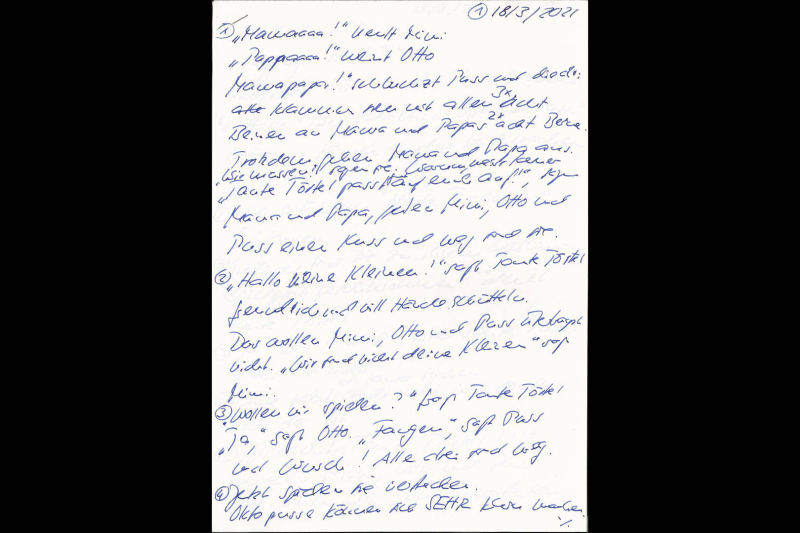 ① 18/3/2021
① „Mamaaaa!" heult Mimi
„Pappaaaa!" weint Otto
Mamapapa!" schluchzt Puss und die drei
klammern sich mit allen 3x acht
Beinen an Mama und Papas 2x acht Beine.
Trotzdem gehen Mama und Papa aus.
„Wir müssen!" sagen sie. Warum, weiss keiner
„Tante Töttel passt auf euch auf!", sagen
Mama und Papa, geben Mimi, Otto und
Puss einen Kuss und weg sind sie.
② „Hallo meine Kleinen!" sagt Tante Töttel
freundlich und will Hände schütteln.
Das wollen Mimi, Otto und Puss überhaupt
nicht. „Wir sind nicht deine Kleinen" sagt
Mimi.
③ „Wollen wir spielen?" fragt Tante Töttel
„Ja," sagt Otto. „Fangen", sagt Puss
und wusch! Alle drei sind weg.
④ Jetzt spielen sie verstecken.
Oktopusse können sich SEHR klein machen.
./.